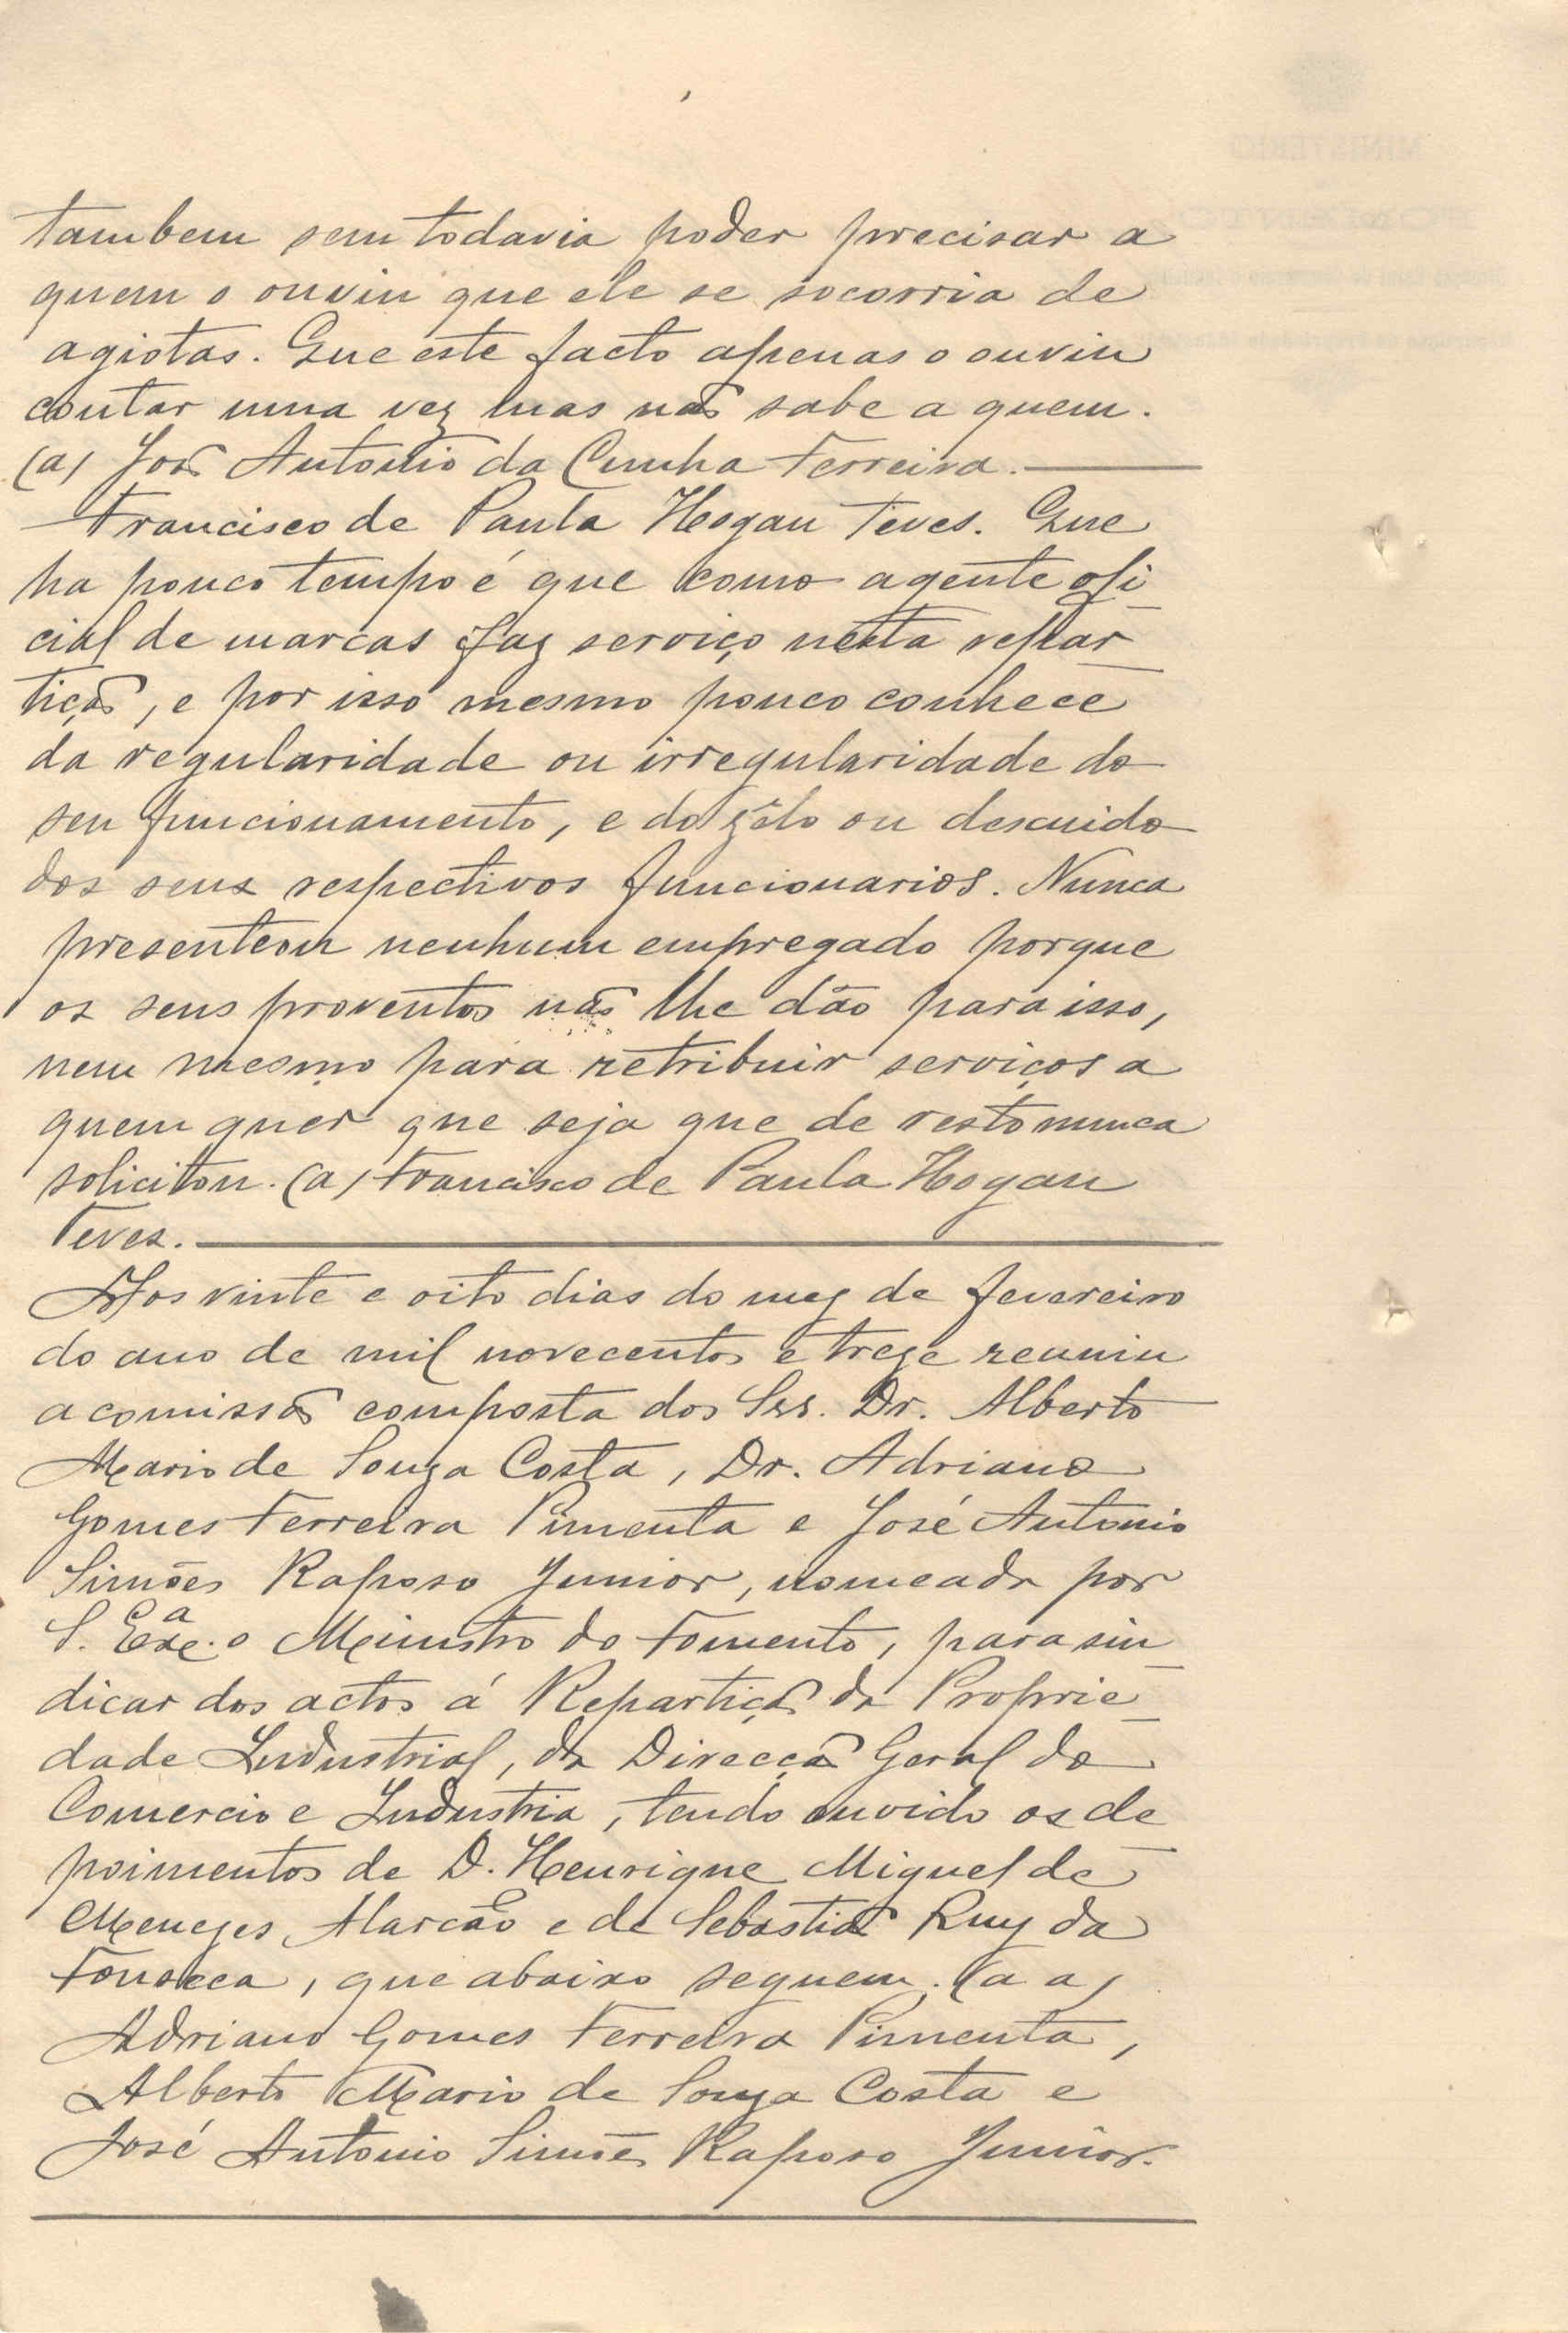 tambem sem todavia poder precisar a
quem o ouviu que ele se socorria de
agiotas. Que este facto apenas o ouviu
contar uma vez mas não sabe a quem.
(a) João Antonio da Cunha Ferreira.
Francisco de Paula Hogan Teves. Que
ha pouco tempo é que como agente ofi
cial de marcas faz serviço nesta repar
tição, e por isso mesmo pouco conhece
da regularidade ou irregularidade do
seu funcionamento, e do zêlo ou descuido
dos seus respectivos funcionarios. Nunca
presenteou nenhum empregado porque
os seus proventos não lhe dão para isso,
nem mesmo para retribuir serviços a
quem quer que seja que de resto nunca
solicitou. (a) Francisco de Paula Hogan
Teves.
Aos vinte e oito dias do mez de fevereiro
do ano de mil novecentos e treze reuniu
a comissão composta dos Srs. Dr. Alberto
Mario de Souza Costa, Dr. Adriano
Gomes Ferreira Pimenta e José Antonio
Simões Raposo Junior, nomeada por
S. Exc.ª o Ministro do Fomento, para sin
dicar dos actos á Repartição da Proprie
dade Industrial, da Direcção Geral do
Comercio e Industria, tendo ouvido os de
poimentos de D. Henrique Miguel de
Menezes Alarcão e de Sebastião Ruy da
Fonseca, que abaixo seguem. (a a)
Adriano Gomes Ferreira Pimenta,
Alberto Mario de Souza Costa e
José Antonio Simões Raposo Junior.